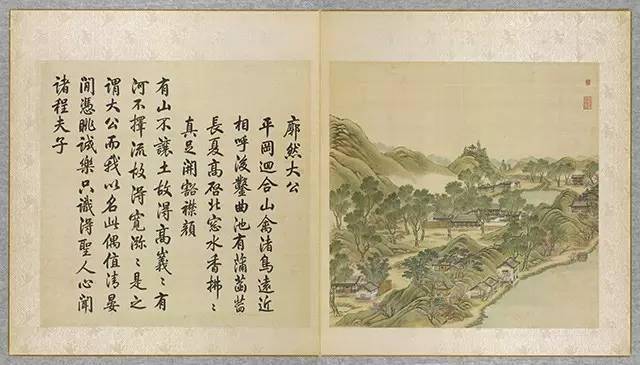 廓然大公
平岡迴合山禽渚鳥遠近
相呼後鑿曲池有蒲菡萏
長夏高啓北窓水香拂〻
真足開豁襟顔
有山不讓土故得高峩〻有
河不擇流故得寬㳽〻是之
謂大公而我以名此偶值清晏
閒憑眺誠樂只識得聖人心聞
諸程夫子